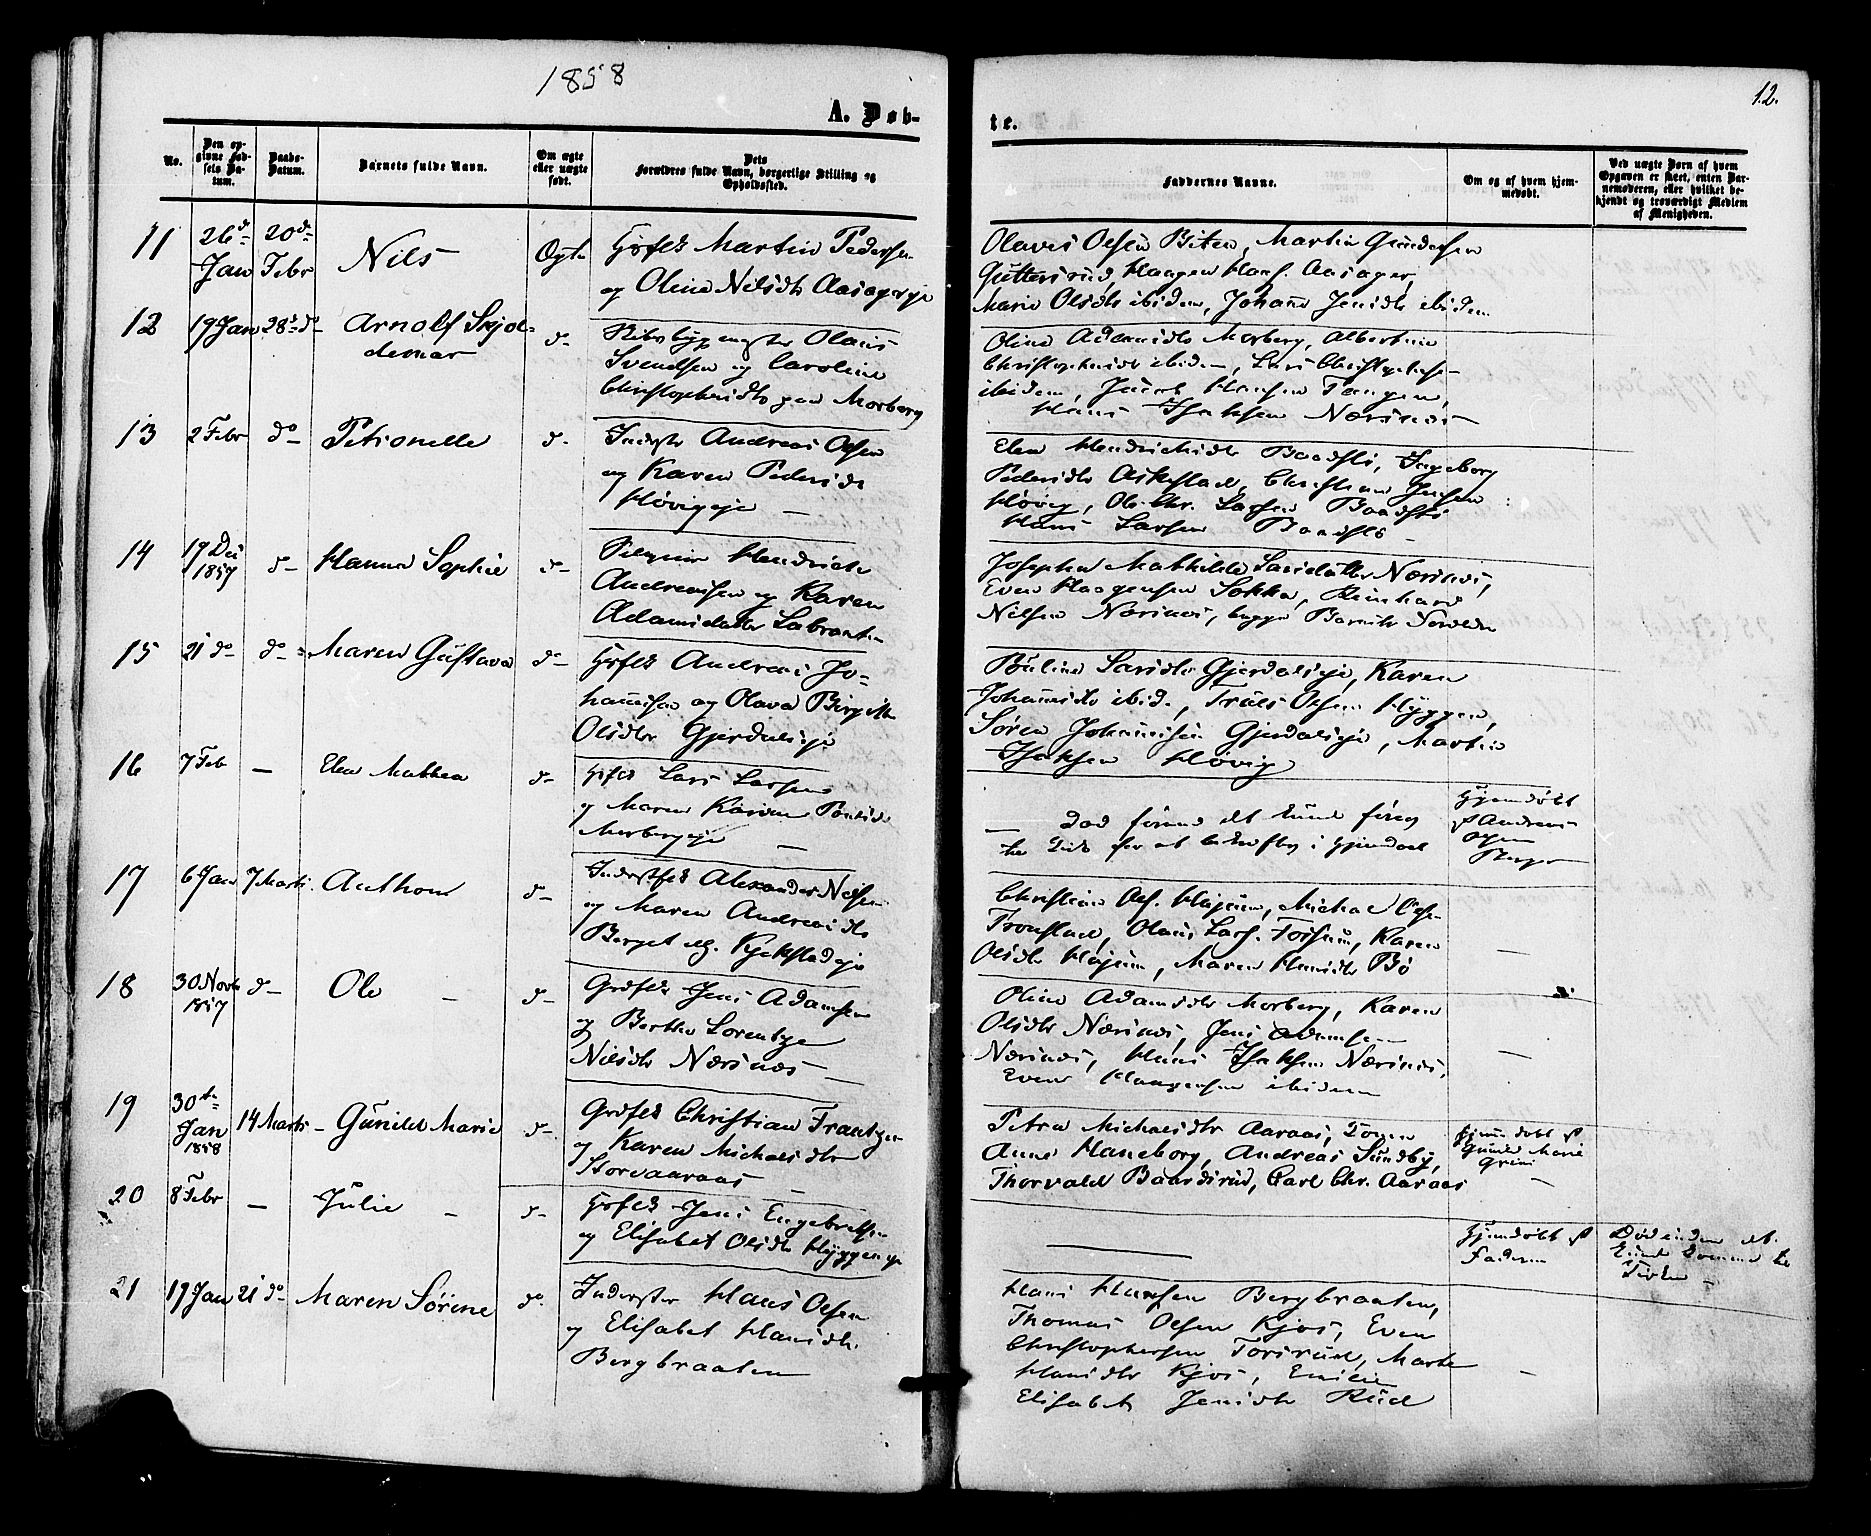 1858
12.
A. Døb-
te.
No.
Den op-
givne Fød-
sels Da-
tum.
Daabs-
Datum.
Barnets fulde Navn.
Om ægte
eller uægte
født.
Dets
Forældres fulde Navn, borgerlige Stilling og
Opholdssted.
Faddernes Navne.
Om og af hvem hjem-
medøbt.
Ved uægte Børn af hvem
Opgaven er skeet, enten Bar-
nemoderen, eller hvilket be-
kjendt og troværdigt Medlem
af Menigheden.
11
26d
Jan
20de
Febr
Nils
Ægte
Martin Pedersen
og Oline Nilsdtr Aasageeje
Olaves Olsen Biten, Martin Gundersen
Guttersrud, Haagen Hans. Aasager,
Marie Olsdtr ibidem, Johanne Jensdtr ibidem
12
19 Jan
28de do
Arnolf Skjol-
demar
d-
Olaus
Svendsen og Caroline
Christophersdtr paa Morberg
Oline Adamsdtr Morberg, Albertine
Christophersdtr ibidem, Lars Christophers
ibidem, Jacob Hansen Tangen,
Hans Isaksen Nærsnæs
13
2 Febr
do
Petronelle
d-
Inderst Andreas Olsen
og Karen Pedersdr
Høvigeje
Elen Hendriksdtr Baadstø, Ingeborg
Pedersdtr Askestad, Christian Jensen
Høvig, Ole Chr. Larsen Baadstø
Hans Larsen Baadstø
14
19 Dec
1857
d-
Hanna Sophie
d-
Hendrick
Andreassen og Karen
Adamsdatter Labraaten
Josepha Mathilde Larsdatter Nærsnæs,
Even Haagensen Sokka, Reinhard
Nilsen Nærsnæs, begge Barnets Forældre
15
21 do
do
Maren Gustava
do
Andreas Jo-
hannesen og Olava Birgitte
Olsdtr Gjerdaleje
Pauline Larsdtr Gjerdaleje, Karen
Johannesdtr ibid., Truls Olsen Hyggen,
Søren Johannesen Gjerdaleje, Martin
Isaksen Høvig
16
7 Feb
Elen Mathea
d-
Lars Larsen
og Maren Karine
Morbergeje
Død førend det kunde føres
til Kirke for at bekræftes i Hjemdaab
Hjemdøbt
af Andreas
17
6 Jan
7 Marts
Anthon
d-
Alexander Nilsen
og Maren Andreasdtr
Berget Kjekstadeje
Christian Ols. Højum, Michael Ols
Tronstad, Olaus Lars. Forsum, Karen
Olsdtr Højum, Maren Hansdtr Bø
18
30 Novbr
1857
d-
Ole
d-
Jens Adamsen
og Berthe Lorentze
Nilsdtr Nærsnæs
Oline Adamsdtr Morberg, Karen
Olsdtr Nærsnæs, Jens Adamsen
Nærsnæs, Hans Isaksen Nærsnæs,
Even Haagensen ibidem
19
30te
Jan
1858
14 Marts
Gunild Marie
d-
Christian Frantzen
og Karen Michaelsdtr
Storaaraas
Petra Michaelsdtr Aaraas,
Anne Haneborg, Andreas Sundby,
Thorvald Baardsrud, Carl Chr. Aaraas
Hjemdøbt af
Gunild Marie
20
8 Febr
Julie
d-
Jens Engebretsen
og Elisabet Olsdtr Hyggeneje
Hjemdøbt af
Faderen
Død inden det
kunde komme til
Kirken
21
19 Jan
21 do
Maren Sørine
do
Inderster Hans Olsen
og Elisabet Hansdtr
Bergbraaten
Hans Hansen Bergbraaten,
Thomas Olsen Kjos, Even
Christophersen Torsrud, Marte
Hansdtr Kjos, Emilie
Elisabet Jensdtr Rud